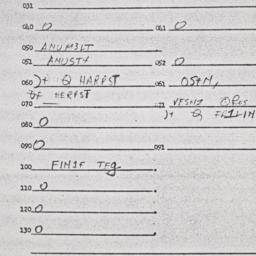 031
040 0 041 0
050 ANUM3LT
051 ANUSTY 052 0
060 )+ Q HARPST 061 OSTM,
OF HERPST
070 VESNZ OROS
)+ Q
080 0
090 0 091
100 FINIF TFg.
110 0
120 0
130 0